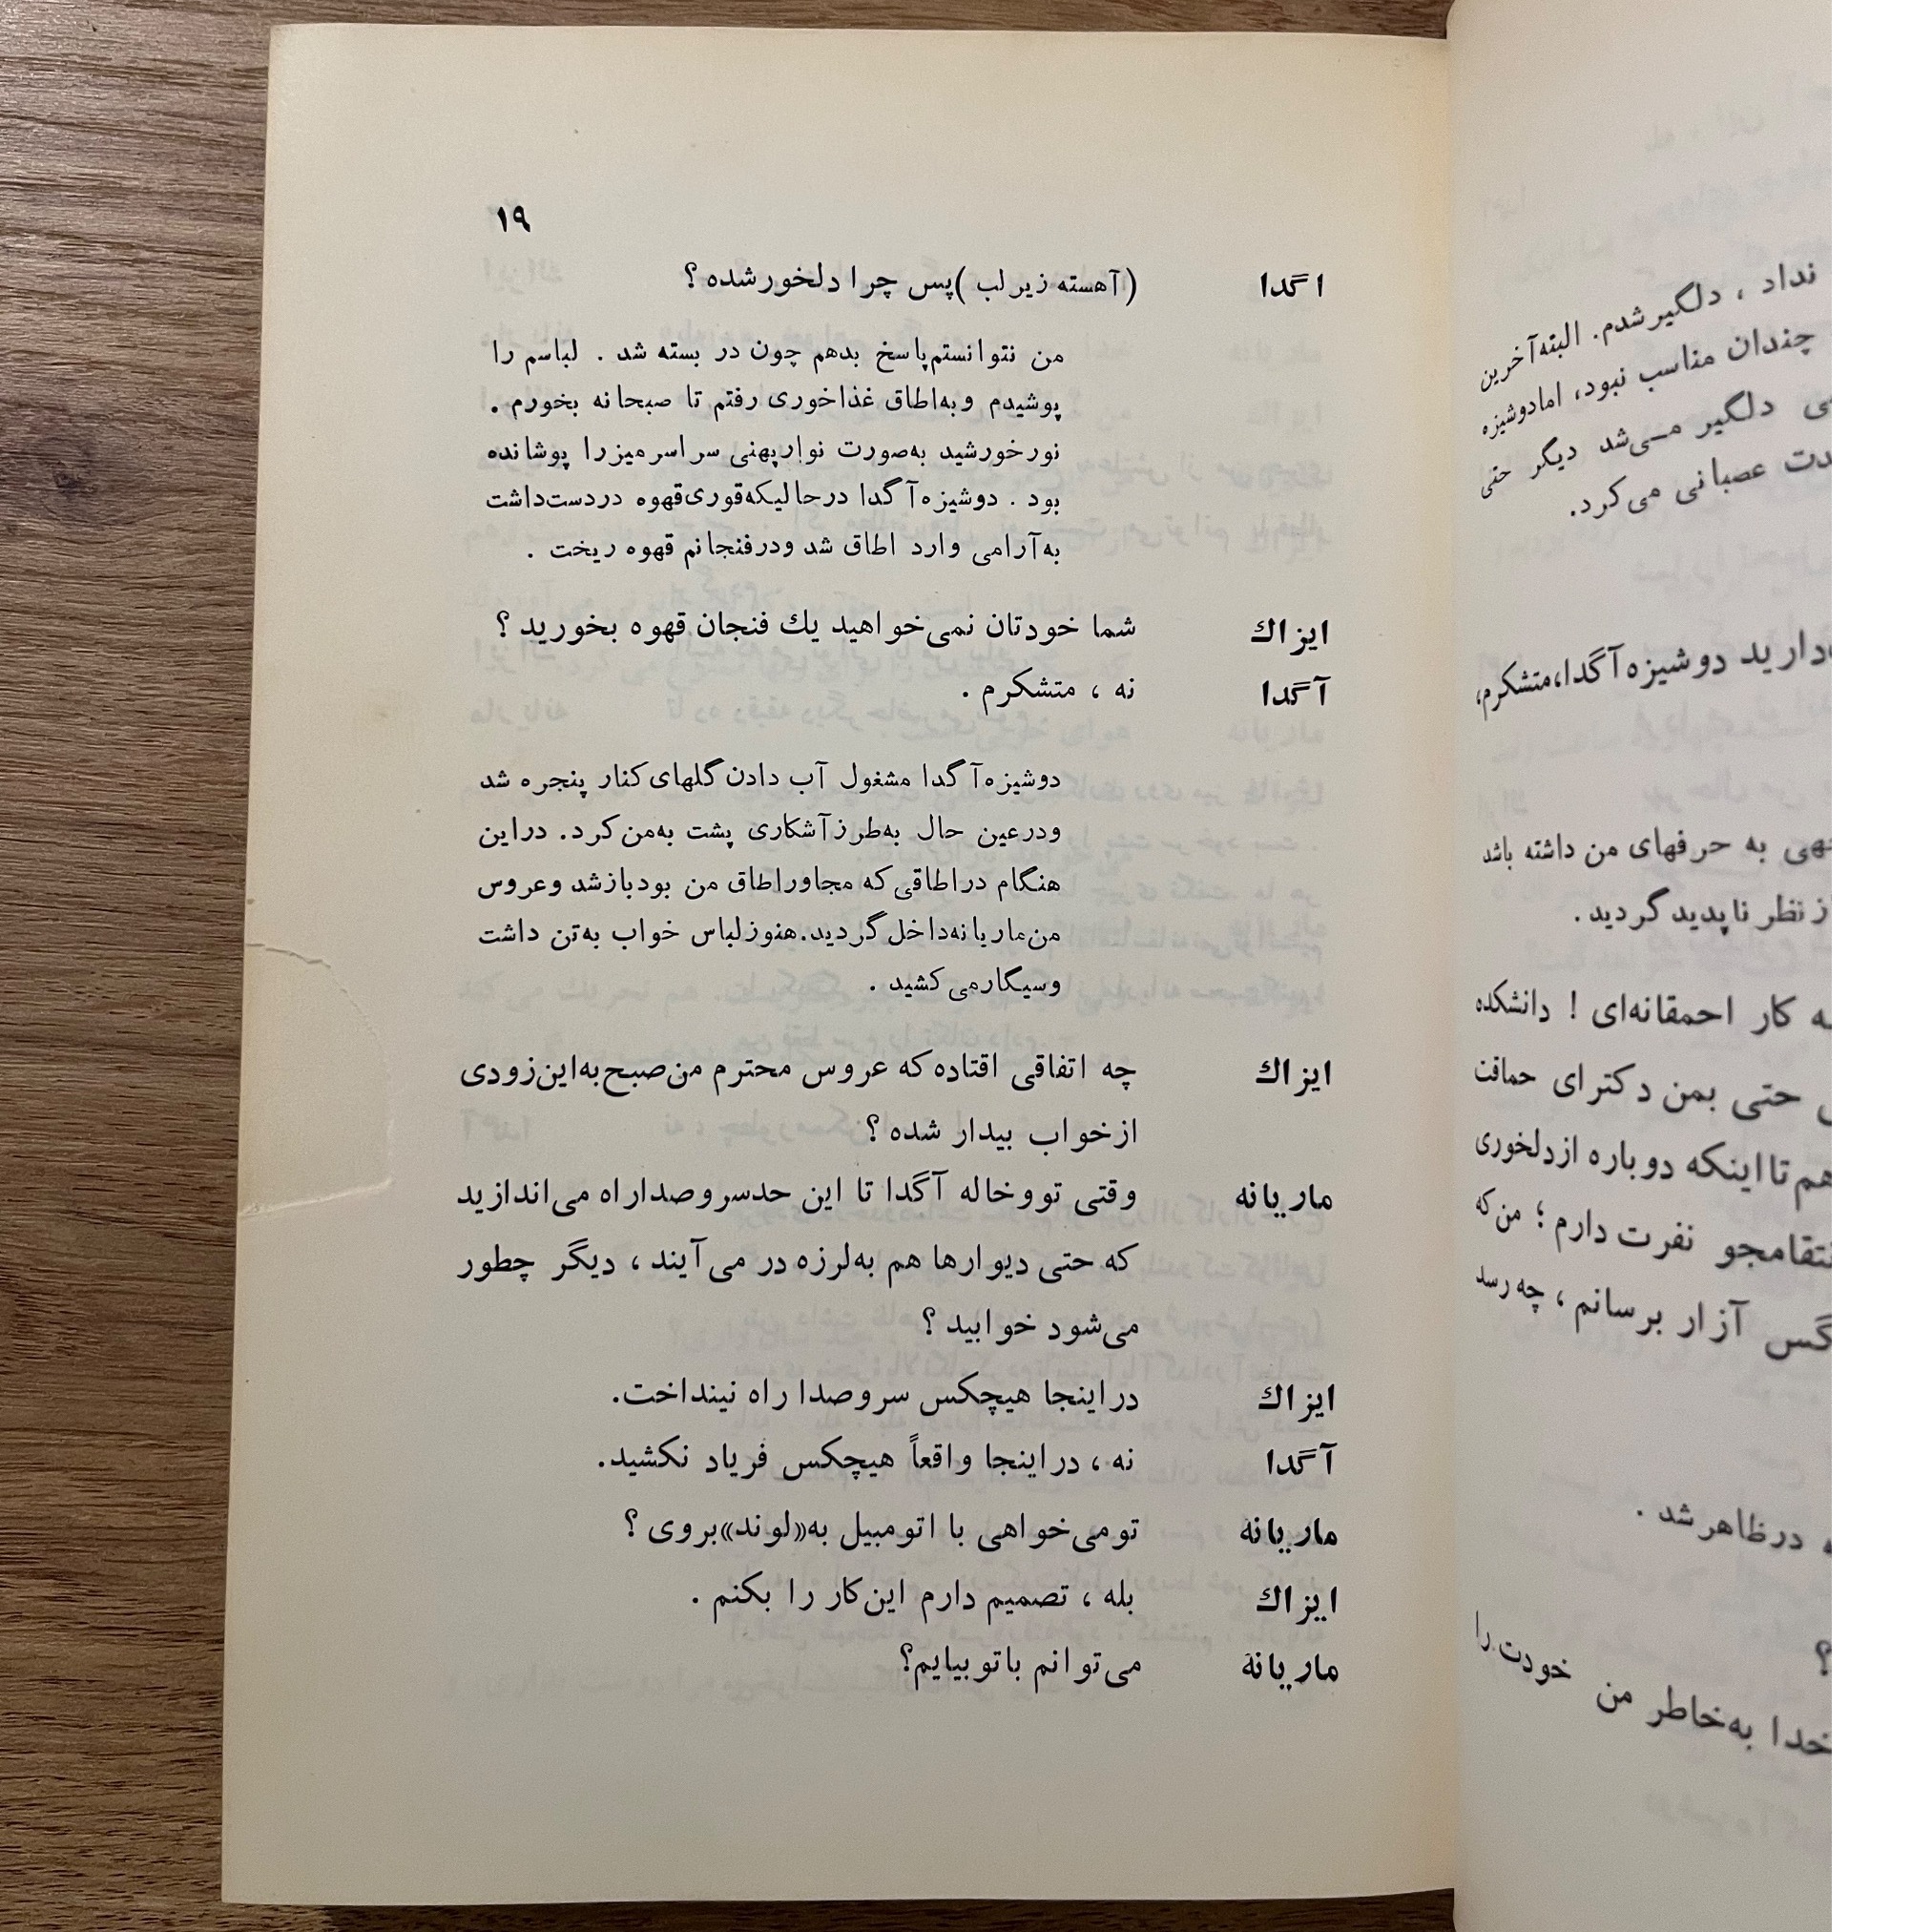 ۱۹
اگدا (آهسته زیر لب) پس چرا دلخور شده؟
من نتوانستم پاسخ بدهم چون در بسته شد . لباسم را
پوشیدم و به‌اطاق غذاخوری رفتم تا صبحانه بخورم .
نور خورشید به‌صورت نوار پهنی سراسر میز را پوشانده
بود . دوشیزه آگدا در حالیکه قوری قهوه در دست داشت
به‌آرامی وارد اطاق شد و در فنجانم قهوه ریخت .
ایزاك شما خودتان نمی‌خواهید یك فنجان قهوه بخورید ؟
آگدا نه ، متشکرم .
دوشیزه آگدا مشغول آب دادن گلهای کنار پنجره شد
و در عین حال به‌طرز آشکاری پشت به‌من کرد. در این
هنگام در اطاقی که مجاور اطاق من بود باز شد و عروس
من ماریانه داخل گردید. هنوز لباس خواب به‌تن داشت
و سیگار می‌کشید .
ایزاك چه اتفاقی اقتاده که عروس محترم من صبح به‌این زودی
از خواب بیدار شده ؟
ماریانه وقتی تو و خاله آگدا تا این حد سر و صدا راه می‌اندازید
که حتی دیوارها هم به‌لرزه در می‌آیند ، دیگر چطور
می‌شود خوابید ؟
ایزاك در اینجا هیچکس سر و صدا راه نینداخت.
آگدا نه ، در اینجا واقعاً هیچکس فریاد نکشید.
ماریانه تو می‌خواهی با اتومبیل به «لوند» بروی ؟
ایزاك بله ، تصمیم دارم این کار را بکنم .
ماریانه می‌توانم با تو بیایم؟
نداد ، دلگیر شدم. البته آخرین
چندان مناسب نبود، اما دوشیزه
دلگیر مـی‌شد دیگر حتی
عصبانی می‌کرد.
دارید دوشیزه آگدا، متشکرم،
به حرفهای من داشته باشد
از نظر ناپدید گردید.
کار احمقانه‌ای ! دانشکده
حتی بمن دکترای حماقت
هم تا اینکه دوباره از دلخوری
نفرت دارم ؛ من که
آزار برسانم ، چه رسد
در ظاهر شد .
؟
خدا به‌خاطر من خودت را